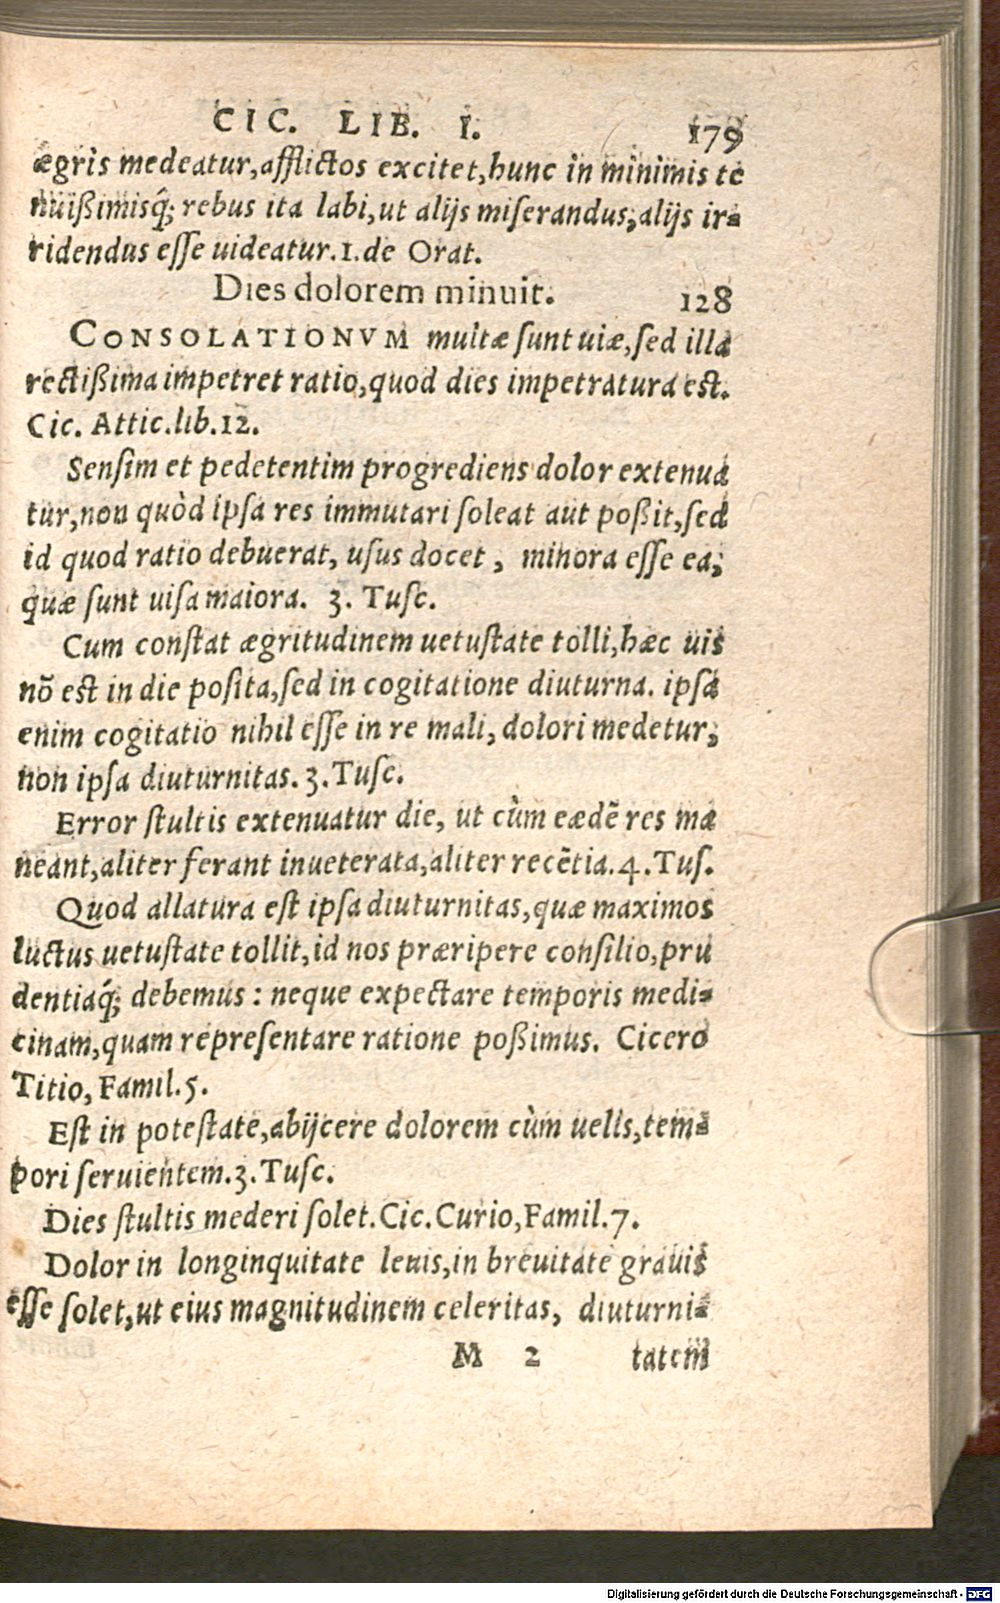 CIC. LIB. I. 179
ægris medeatur,afflictos excitet,hunc in minimis te
nuißimisq́; rebus ita labi,ut alijs miserandus,alijs ir=
ridendus eſſe uideatur.1.de Orat.
Dies dolorem minuit. 128
CONSOLATIONVM multæ ſunt uiæ,ſed illa
rectißima impetret ratio,quod dies impetratura est.
Cic. Attic.lib.12.
Senſim et pedetentim progrediens dolor extenua
tur,non quòd ipſa res immutari ſoleat aut poßit,ſed
id quod ratio debuerat, uſus docet, minora eſſe ea,
quæ ſunt uiſa maiora. 3. Tuſc.
Cum conſtat ægritudinem uetuſtate tolli,hæc uis
nō est in die poſita,ſed in cogitatione diuturna. ipſa
enim cogitatio nihil eſſe in re mali, dolori medetur,
non ipſa diuturnitas.3.Tuſc.
Error ſtultis extenuatur die, ut cùm eædē res ma
neant,aliter ferant inueterata,aliter recētia.4.Tuſ.
Quod allatura est ipſa diuturnitas,quæ maximos
luctus uetuſtate tollit,id nos præripere conſilio,pru
dentiaq́; debemus : neque expectare temporis medi=
cinam,quam repreſentare ratione poßimus. Cicero
Titio, Famil.5.
Est in poteſtate,abijcere dolorem cùm uelis,tem=
pori ſeruientem.3.Tuſc.
Dies ſtultis mederi ſolet.Cic.Curio,Famil.7.
Dolor in longinquitate leuis,in breuitate grauis
eſſe ſolet,ut eius magnitudinem celeritas, diuturni=
M 2 tatem
Digitalisierung gefördert durch die Deutsche Forschungsgemeinschaft - DFG